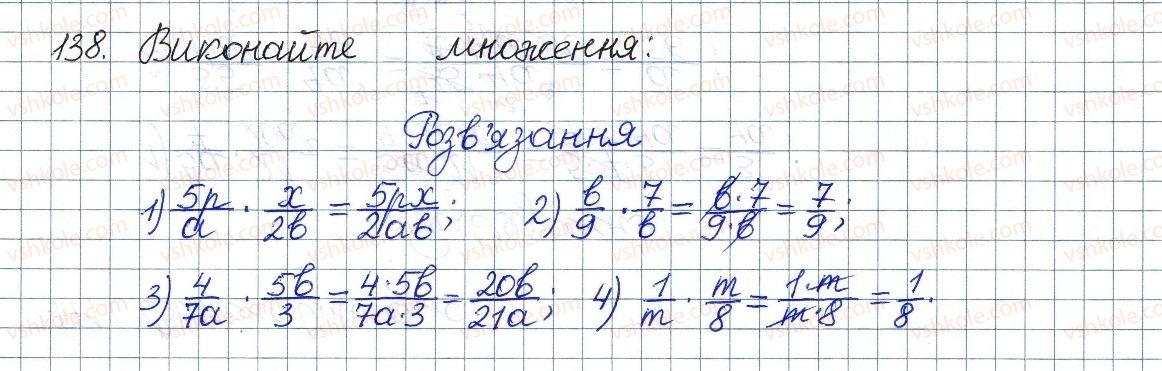 138. Виконайте множення:
Розв'язання
1) 5p/a · x/2b = 5px/2ab; 2) b/9 · 7/b = b·7/9·b = 7/9;
3) 4/7a · 5b/3 = 4·5b/7a·3 = 20b/21a; 4) 1/m · m/8 = 1·m/m·8 = 1/8.